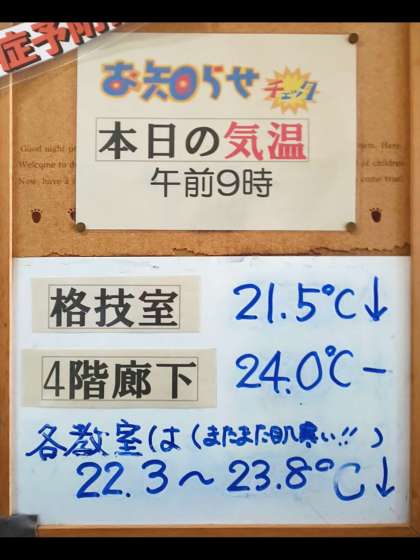 症予防
お知らせ
チェック
本日の気温
午前9時
Good night
Welcome to
of children
Now, have a
come true.
格技室 21.5℃↓
4階廊下 24.0℃−
各教室は(まだまだ肌寒い!!)
22.3〜23.8℃↓